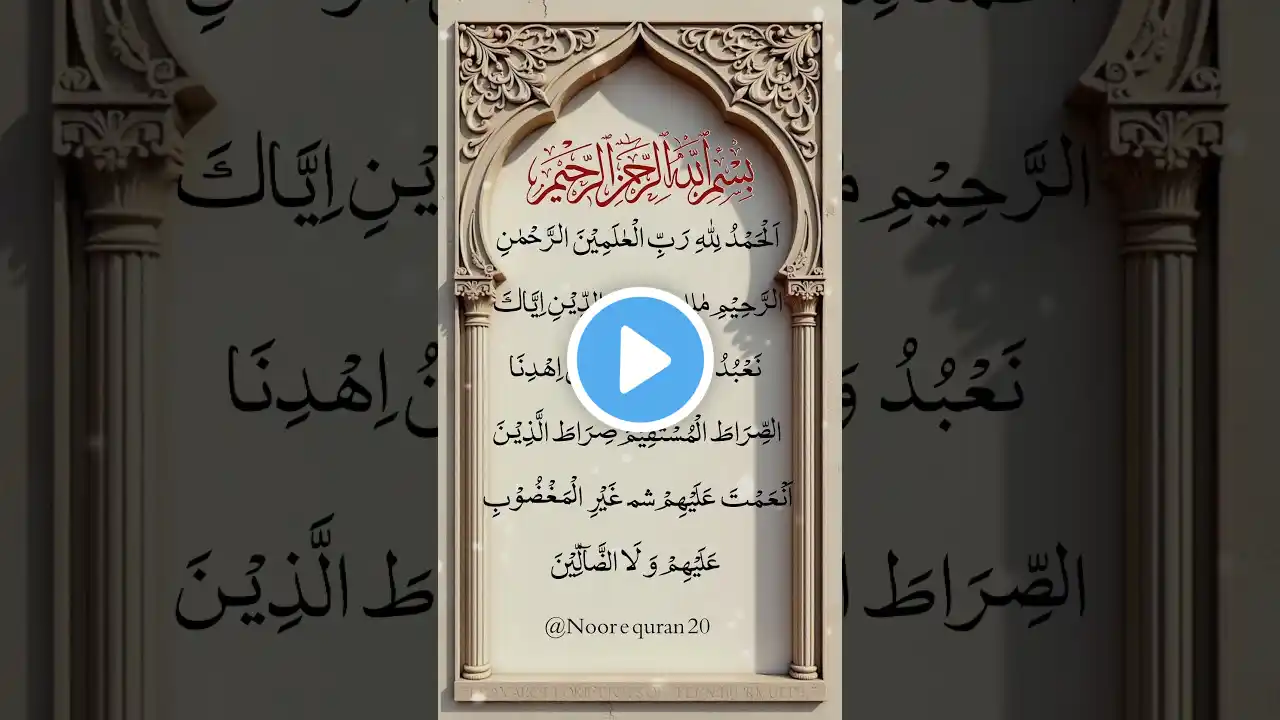 بِسْمِ اللّٰهِ الرَّحْمٰنِ الرَّحِيْمِ
اَلْحَمْدُ لِلّٰهِ رَبِّ الْعٰلَمِيْنَ الرَّحْمٰنِ
الرَّحِيْمِ الدِّيْنِ اِيَّاكَ
نَعْبُدُ اِهْدِنَا
الصِّرَاطَ الْمُسْتَقِيْمَ صِرَاطَ الَّذِيْنَ
اَنْعَمْتَ عَلَيْهِمْ غَيْرِ الْمَغْضُوْبِ
عَلَيْهِمْ وَ لَا الضَّآلِّيْنَ
@Noor e quran 20